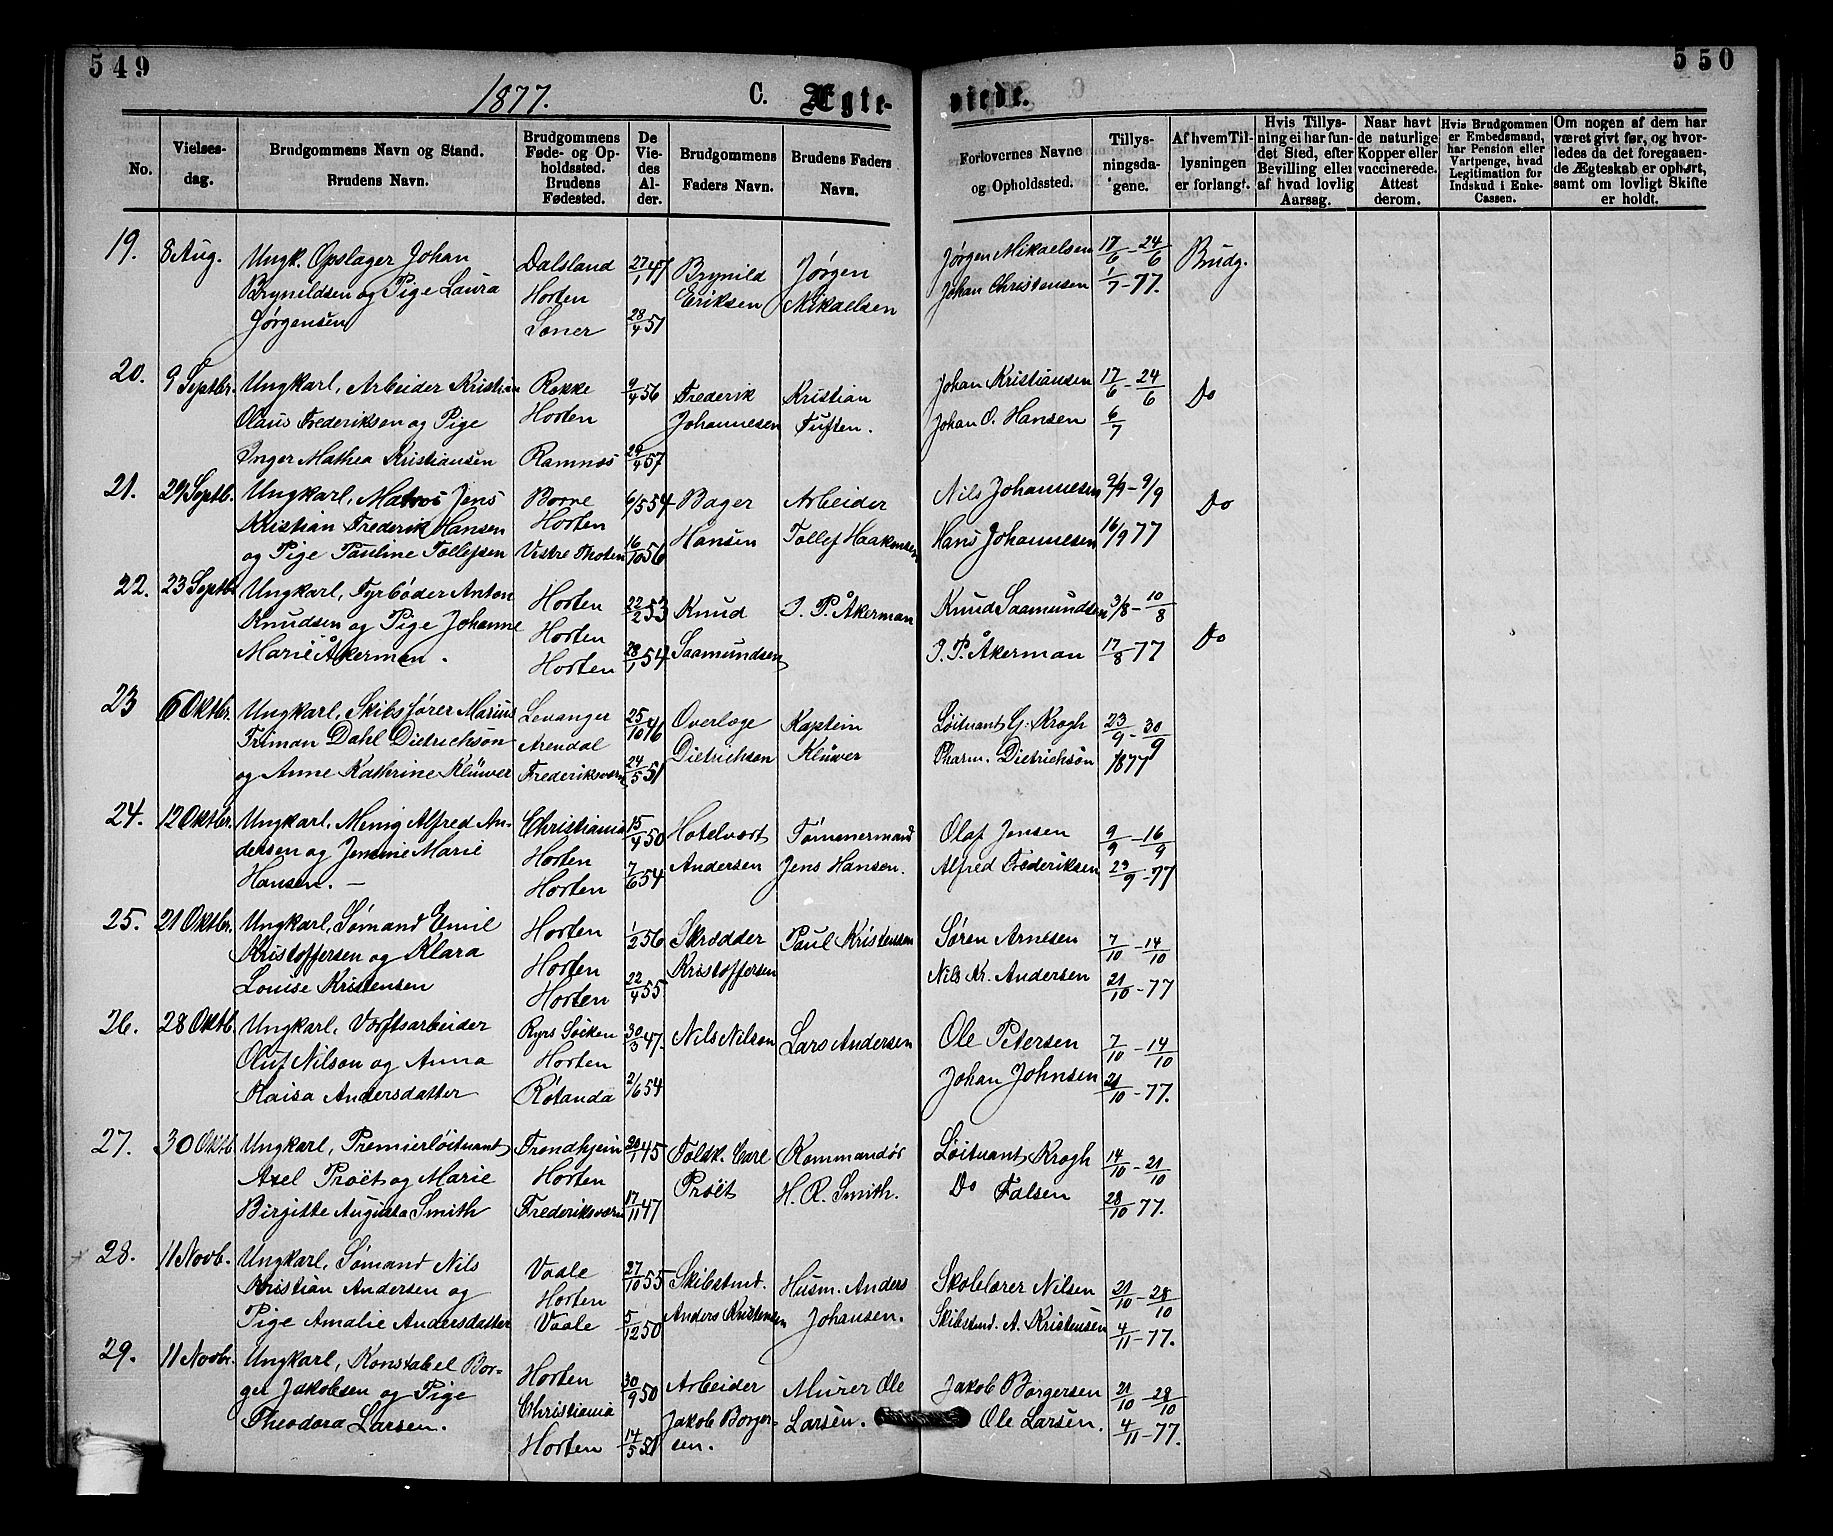 549
550
1877.
C. Ægte-
viede.
No.
Vielses-
dag.
Brudgommens Navn og Stand.
Brudens Navn.
Brudgommens
Føde- og Op-
holdssted.
Brudens
Fødested.
De
Vie-
des
Al-
der.
Brudgommens
Faders Navn.
Brudens Faders
Navn.
Forlovernes Navne
og Opholdssted.
Tillys-
ningsda-
gene.
Af hvem Til-
lysningen
er forlangt.
Hvis Tillys-
ning ei har fun-
det Sted, efter
Bevilling eller
af hvad lovlig
Aarsag.
Naar havt
de naturlige
Kopper eller
vaccinerede.
Attest
derom.
Hvis Brudgommen
er Embedsmand,
har Pension eller
Vartpenge, hvad
Legitimation for
Indskud i Enke-
Cassen.
Om nogen af dem har
været givt før, og hvor-
ledes da det foregaaen-
de Ægteskab er ophørt,
samt om lovligt Skifte
er holdt.
19.
8 Aug.
Ungk. Opslager Johan
Brynildsen og Pige Laura
Jørgensen
Dalsland
Horten
Soner
27/1 47
28/4 51
Brynild
Eriksen
Jørgen
Mikaelsen
Jørgen Mikaelsen
Johan Christensen
17/6 - 24/6
1/7 - 77.
Brudg.
20.
9 Septbr.
Ungkarl, Arbeider Kristian
Olaus Frederiksen og Pige
Inger Mathea Kristiansen
Rakke
Horten
Ramnæs
9/4 56
29/4 57
Frederik
Johannesen
Kristian
Tuften.
Johan Kristiansen
Johan O. Hansen
17/6 - 24/6
6/7
Do
21.
29 Septb.
Ungkarl, Matros Jens
Kristian Frederik Hansen
og Pige Pauline Tollefsen
Borre
Horten
Vestre Thoten
6/5 54
16/10 56
Bager
Hansen
Arbeider
Tollef Haakensen
Nils Johannesen
Hans Johannesen
2/9 - 9/9
16/9 77
Do
22.
23 Septb.
Ungkarl, Fyrbøder Anton
Knudsen og Pige Johanne
Marie Åkerman.
Horten
Horten
Horten
22/2 53
28/1 54
Knud
Saamundsen
J. P. Åkerman
Knud Saamundsen
J. P. Åkerman
3/8 - 10/8
17/8 - 77
Do
23
6 Oktbr.
Ungkarl, Skibsfører Marius
Friman Dahl Dietrichson
og Anne Kathrine Klüwer
Levanger
Arendal
Frederiksværn
25/10 46
24/5 51
Overlæge
Dietrichson
Kaptein
Klüwer
Løitnant G. Krogh
Pharm. Dietrichson
23/9 - 30/9
1877
24.
12 Oktbr.
Ungkarl, Menig Alfred An-
dersen og Jensine Marie
Hansen. —
Christiania
Horten
Horten
15/4 50
7/6 54
Hotelvært
Andersen
Tømmermand
Jens Hansen.
Olaf Jensen
Alfred Frederiksen
9/9 - 16/9
23/9 - 77
25.
21 Oktbr.
Ungkarl, Sømand Emil
Kristoffersen og Klara
Louise Kristensen
Horten
Horten
Horten
1/2 56
22/4 55
Skrædder
Kristoffersen
Paul Kristensen
Søren Arnesen
Nils Kr. Andersen
7/10 - 14/10
21/10 - 77
26.
28 Oktb.
Ungkarl, Værftsarbeider
Oluf Nilson og Anna
Kaisa Andersdatter
Ryrs Socken
Horten
Rölanda
30/3 47.
2/6 54
Nils Nilson
Lars Andersen
Ole Petersen
Johan Johnsen
7/10 - 14/10
21/10 - 77.
27.
30 Oktb
Ungkarl, Premierløitnant
Axel Proët og Marie
Birgitte Augusta Smith
Trondhjem
Horten
Frederiksværn
20/1 45
17/11 47
Toldk. Carl
Proët
Kommandør
H. R. Smith.
Løitnant Krogh
Do Falsen
14/10 - 21/10
28/10 - 77.
28.
11 Novb.
Ungkarl, Sømand Nils
Kristian Andersen og
Pige Amalie Andersdatter
Vaale
Horten
Vaale
27/10 55
5/12 50
Skibstmd.
Anders Kristensen
Husm. Anders
Johansen.
Skolelærer Nilsen
Skibstmd. A. Kristensen
21/10 - 28/10
4/11 - 77.
29.
11 Novbr.
Ungkarl, Konstabel Bor-
ger Jakobsen og Pige
Theodora Larsen.
Horten
Christiania
Horten
30/9 50
14/5 51
Arbeider
Jakob Borger-
sen.
Murer Ole
Larsen.
Jakob Borgersen
Ole Larsen.
21/10 - 28/10
4/11 - 77.